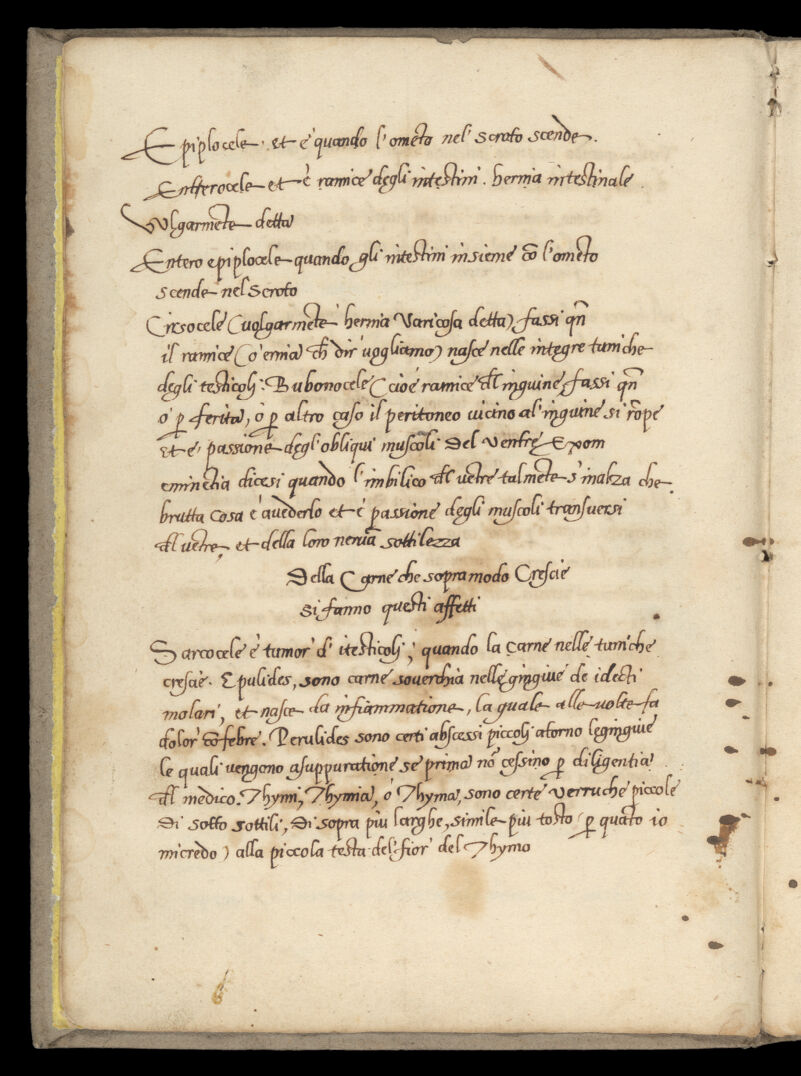 Epiplocele et è quando l'omẽto nel scroto scende.
Entterocele et è ramice degli intestini. hernia intestinale
Vulgarmẽte detta
Entero epiplocele quando gli intestini insieme cõ l'omẽto
scende nel scroto
Cirsocele (uolgarmẽte hernia Varicosa detta) fassi qñ
il ramice (o' ernia ch̃ dir uogliamo) nasce nelle integre tuniche
degli testicoli: Bubonocele (cioè ramice dl inguine, fassi qñ
ò ꝑ ferita, ò ꝑ altro caso il peritoneo uicino al'inguine si rõpe
et è passione degl'obliqui muscoli Del Ventre Exom
eminẽtia dicesi quando l'imbilico dl uẽtre talmẽte s'inalza che
brutta cosa è auederlo et è passione degli muscoli transuersi
dl uẽtre, et della loro neruã sottilezza
Della Carne che sopramodo Crescie
si fanno questi affetti
Sarcocele è tumor' d' itesticoli, quando la carne nelle tuniche
crescie. Epulides, sono carne souerchia nelle gingiue de idẽti
molari, et nasce da infiammatione, la quale alle uolte fa
dolor' cõ febre. Perulides sono certi abscessi piccoli atorno le gingiue
le quali uengono asuppuratione se prima nõ cessino ꝑ diligentia
dl medico. Thymi, Thymia, ò Thyma, sono certe verruche piccole
di sotto sottili, di sopra piu larghe, simile piu tosto (ꝑ quãto io
micredo) alla piccola testa del fior' del Thymo